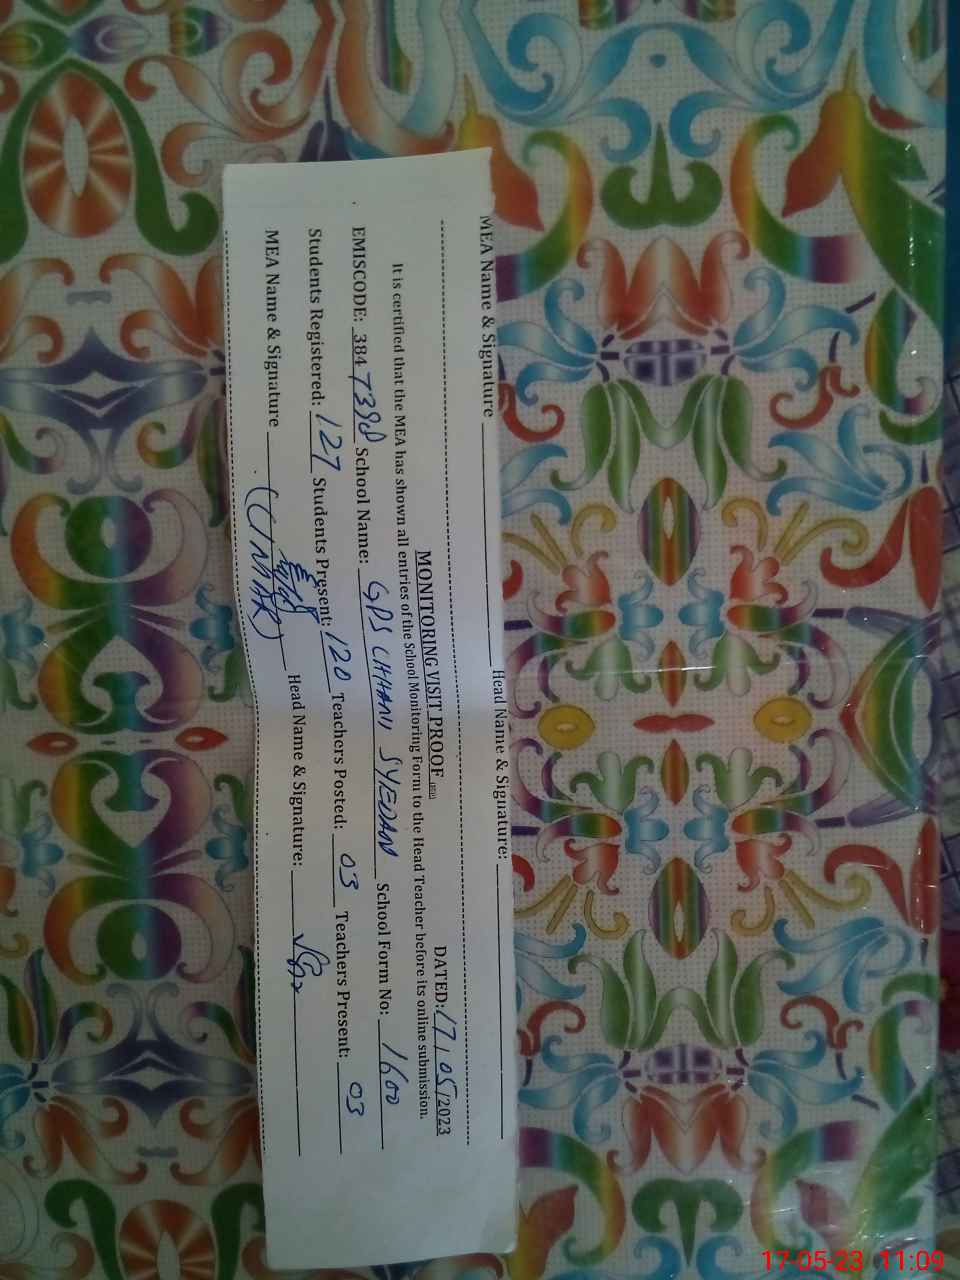 MEA Name & Signature ____________ Head Name & Signature: ____________
MONITORING VISIT PROOF DATED: 17/05/2023
It is certified that the MEA has shown all entries of the School Monitoring Form to the Head Teacher before its online submission.
EMISCODE: 384 7398 School Name: GPS CHHANI SYEDAN School Form No: 1600
Students Registered: 127 Students Present: 120 Teachers Posted: 03 Teachers Present: 03
MEA Name & Signature ____________ Head Name & Signature: ____________
(UMAR)
17-05-23 11:09